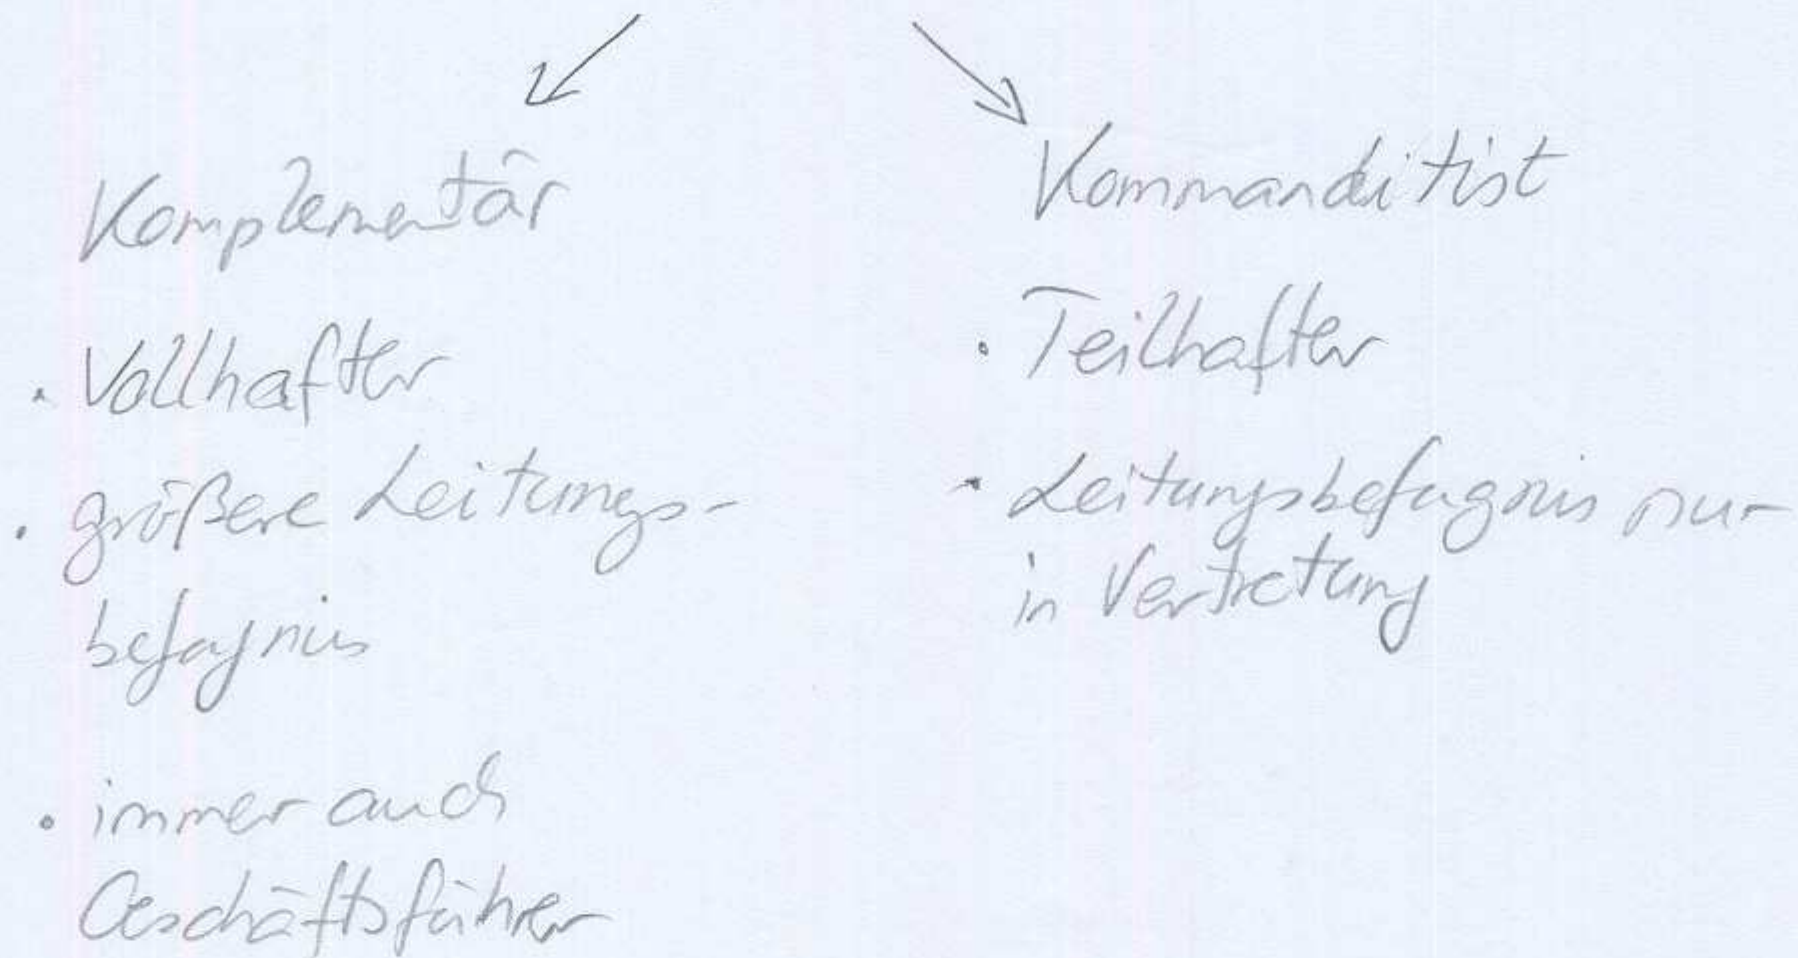 Komplementär
· Vollhafter
· größere Leitungs-
befugnis
· immer auch
Geschäftsführer
Kommanditist
· Teilhafter
· Leitungsbefugnis nur
in Vertretung